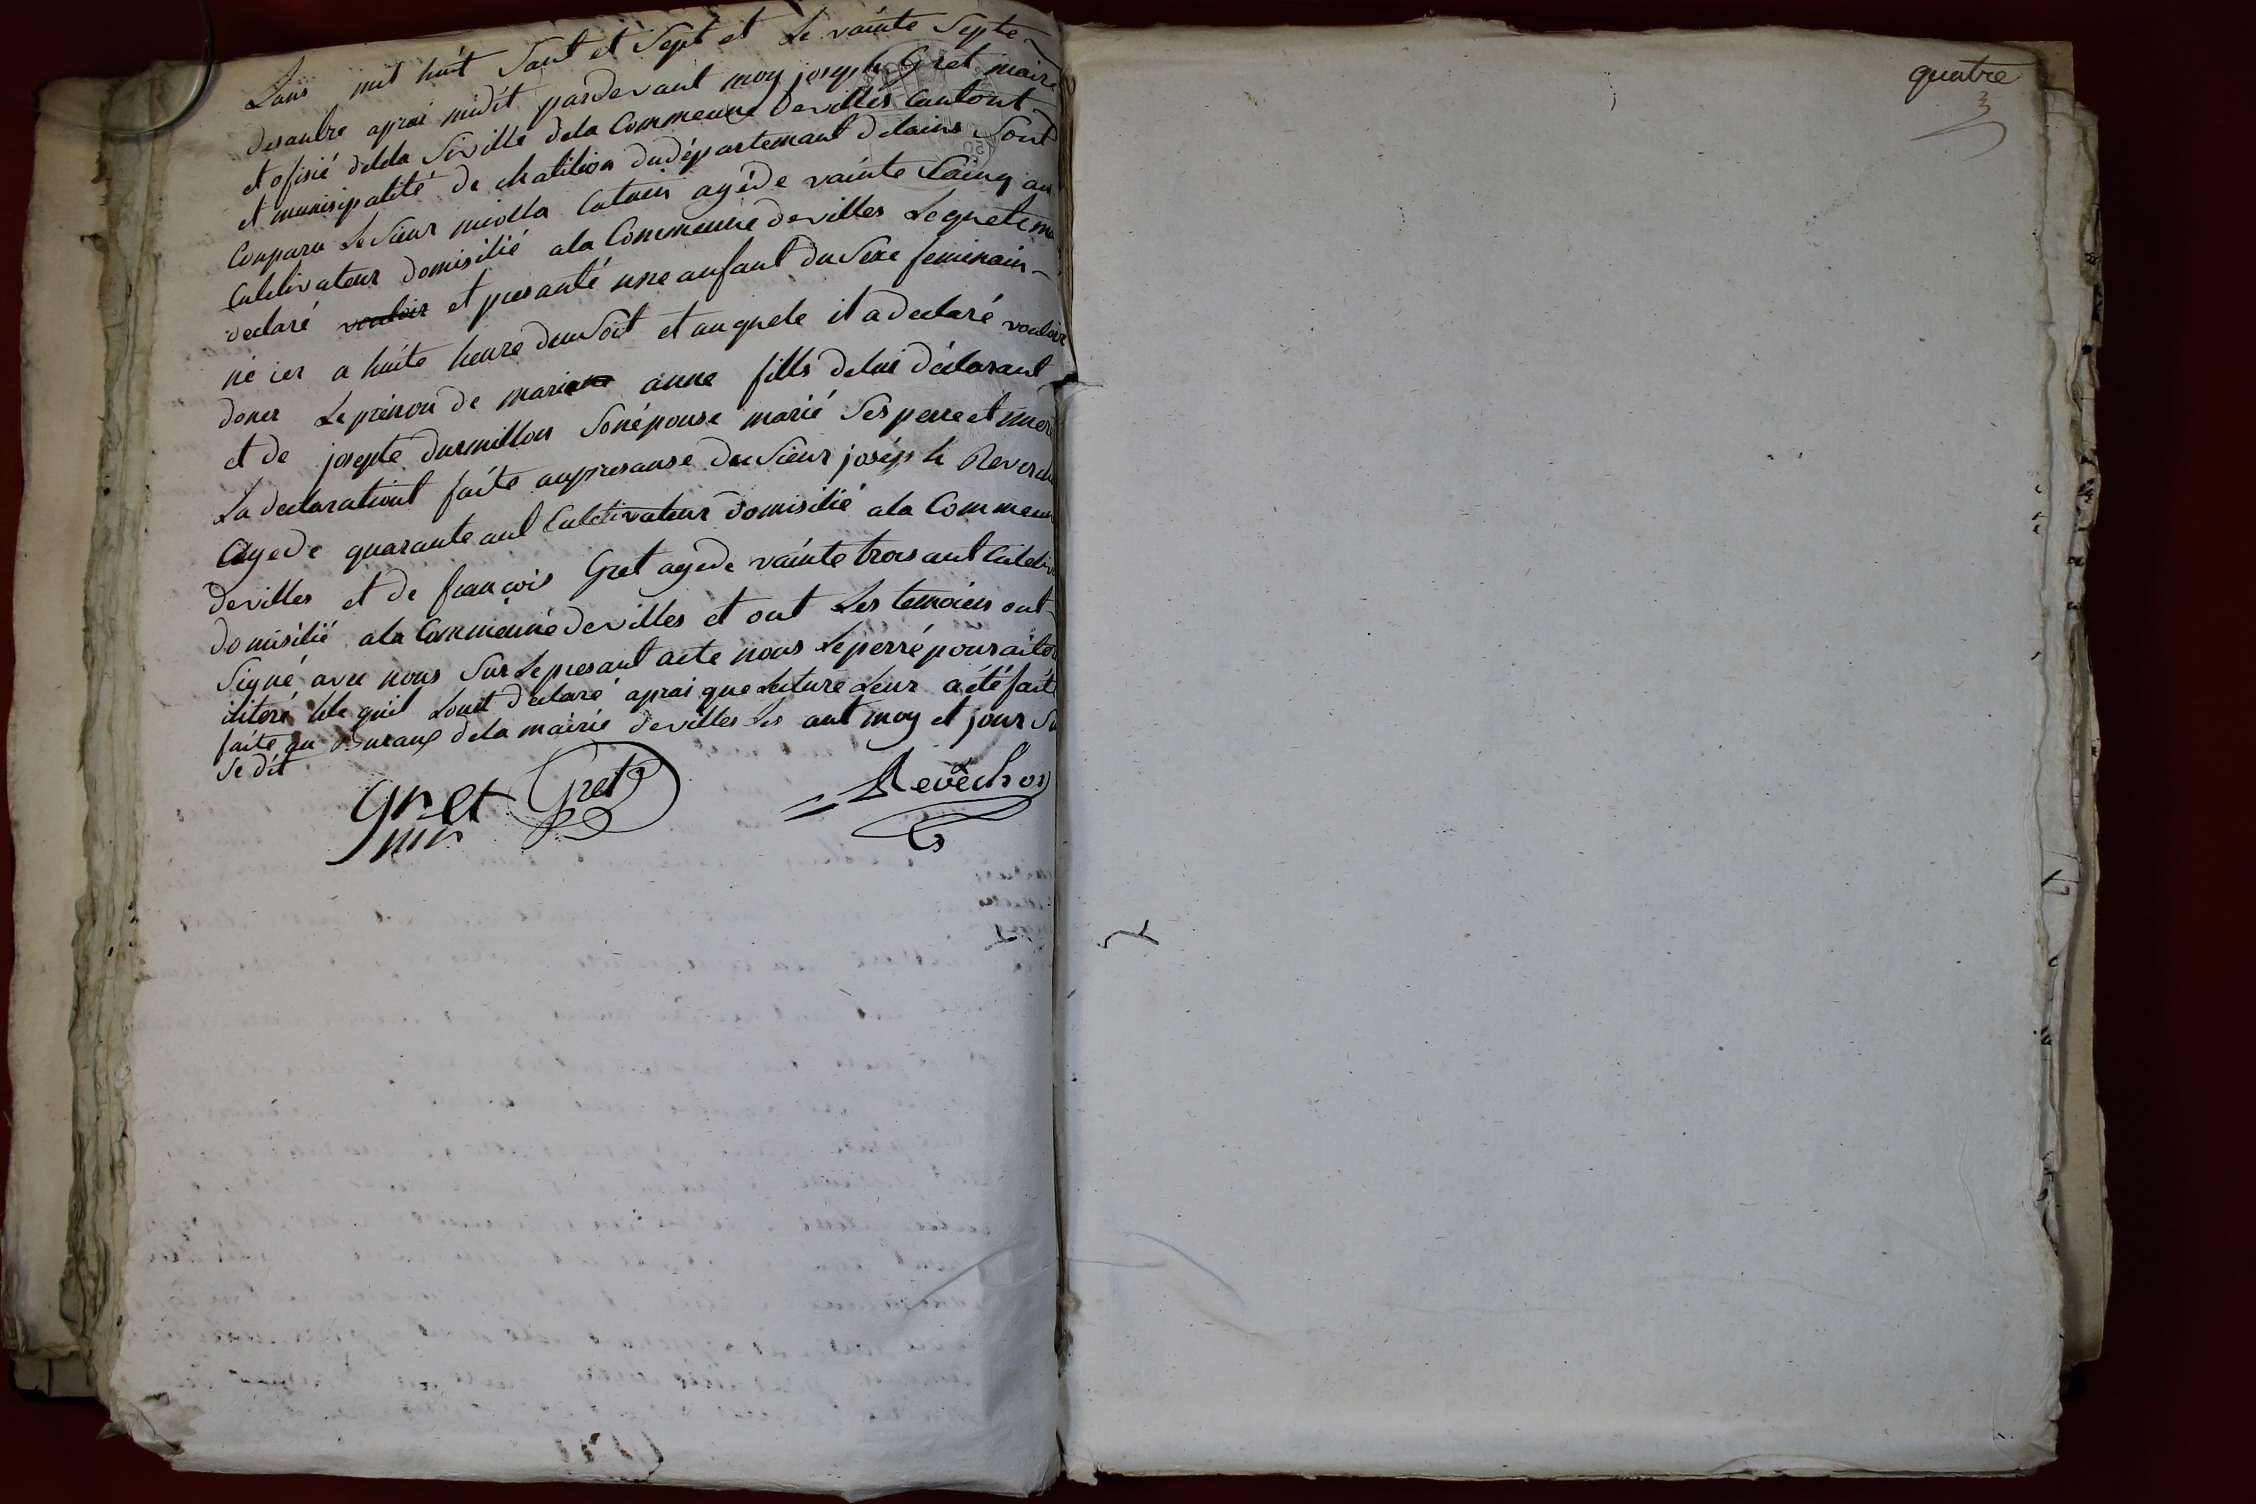 Lans mil huit Sant et Sept et Le vainte Septe
desanbre aprai midit pardevant moy joseph Gret maire
et ofisié delda Siville dela Commeune Devilles Cantont
et munisipalité de chatilion dudépartemant delains Sont
Conparu Le Sieur miolla Catnin agéde vainte Cainq an
Cultivateur domisilié ala Commeune devilles Lequel
declaré vouloir et presanté une anfant du Sexe feminain
né ier a huite heure deu Soit et auquele il a declaré vouloir
doner Le prénon de mariane anne fills delui déclarant
et de josepte durmillon Sonépouse marié Ses perre et mere
La declarationt faite anpresanse deu Sieur joséph
agede quarante ant Cultivateur domisilié ala Commeune
devilles et de françois Gret agede vainte trois ant
domisilié ala Commeune devilles et ont Les temoiens ont
Signé avec nous Sur Le presant acte nous Le perré pour
ilitoré Lile quil Lonet déclaré aprai que Lecture Leur a été faite
faite au Buraux dela mairie devilles Les ant moy et jour Su
Se dit
Gret Gret Revêchon
mer
quatre